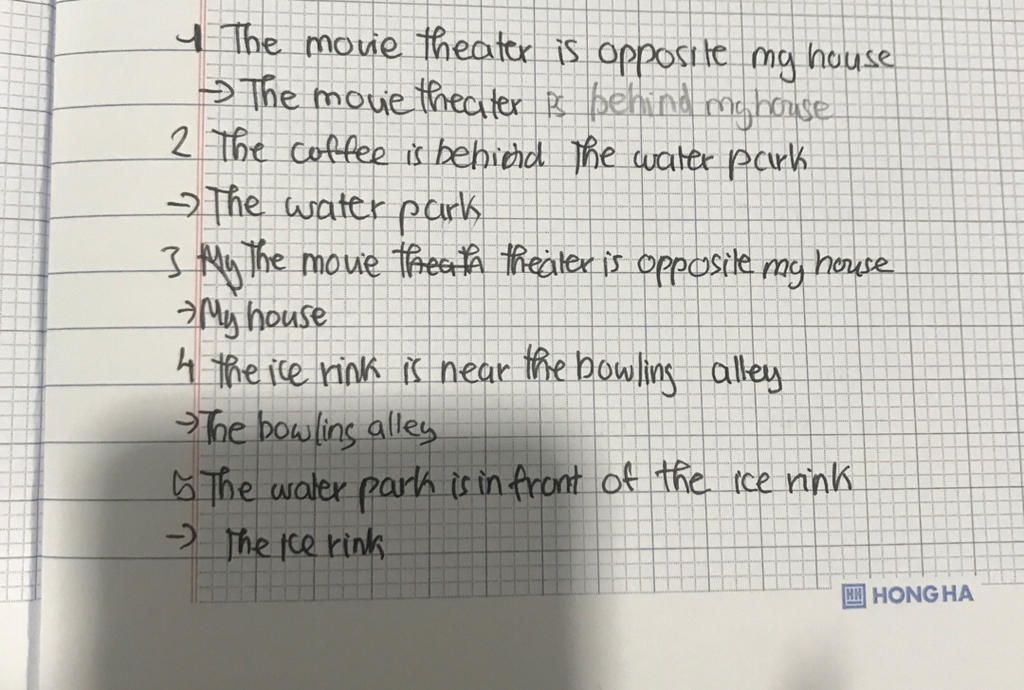 1 The movie theater is opposite my house
→ The movie theater is behind my house
2 The coffee is behind The water park
→ The water park
3 My The movie theath theater is opposite my house
→ My house
4 the ice rink is near the bowling alley
→ The bowling alley
5 The water park is in front of the ice rink
→ The ice rink
HH HONG HA